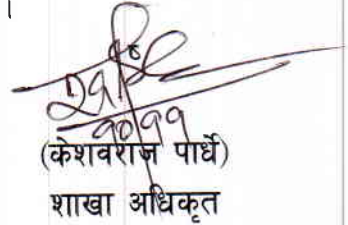 (केशवराज पार्धे)
शाखा अधिकृत